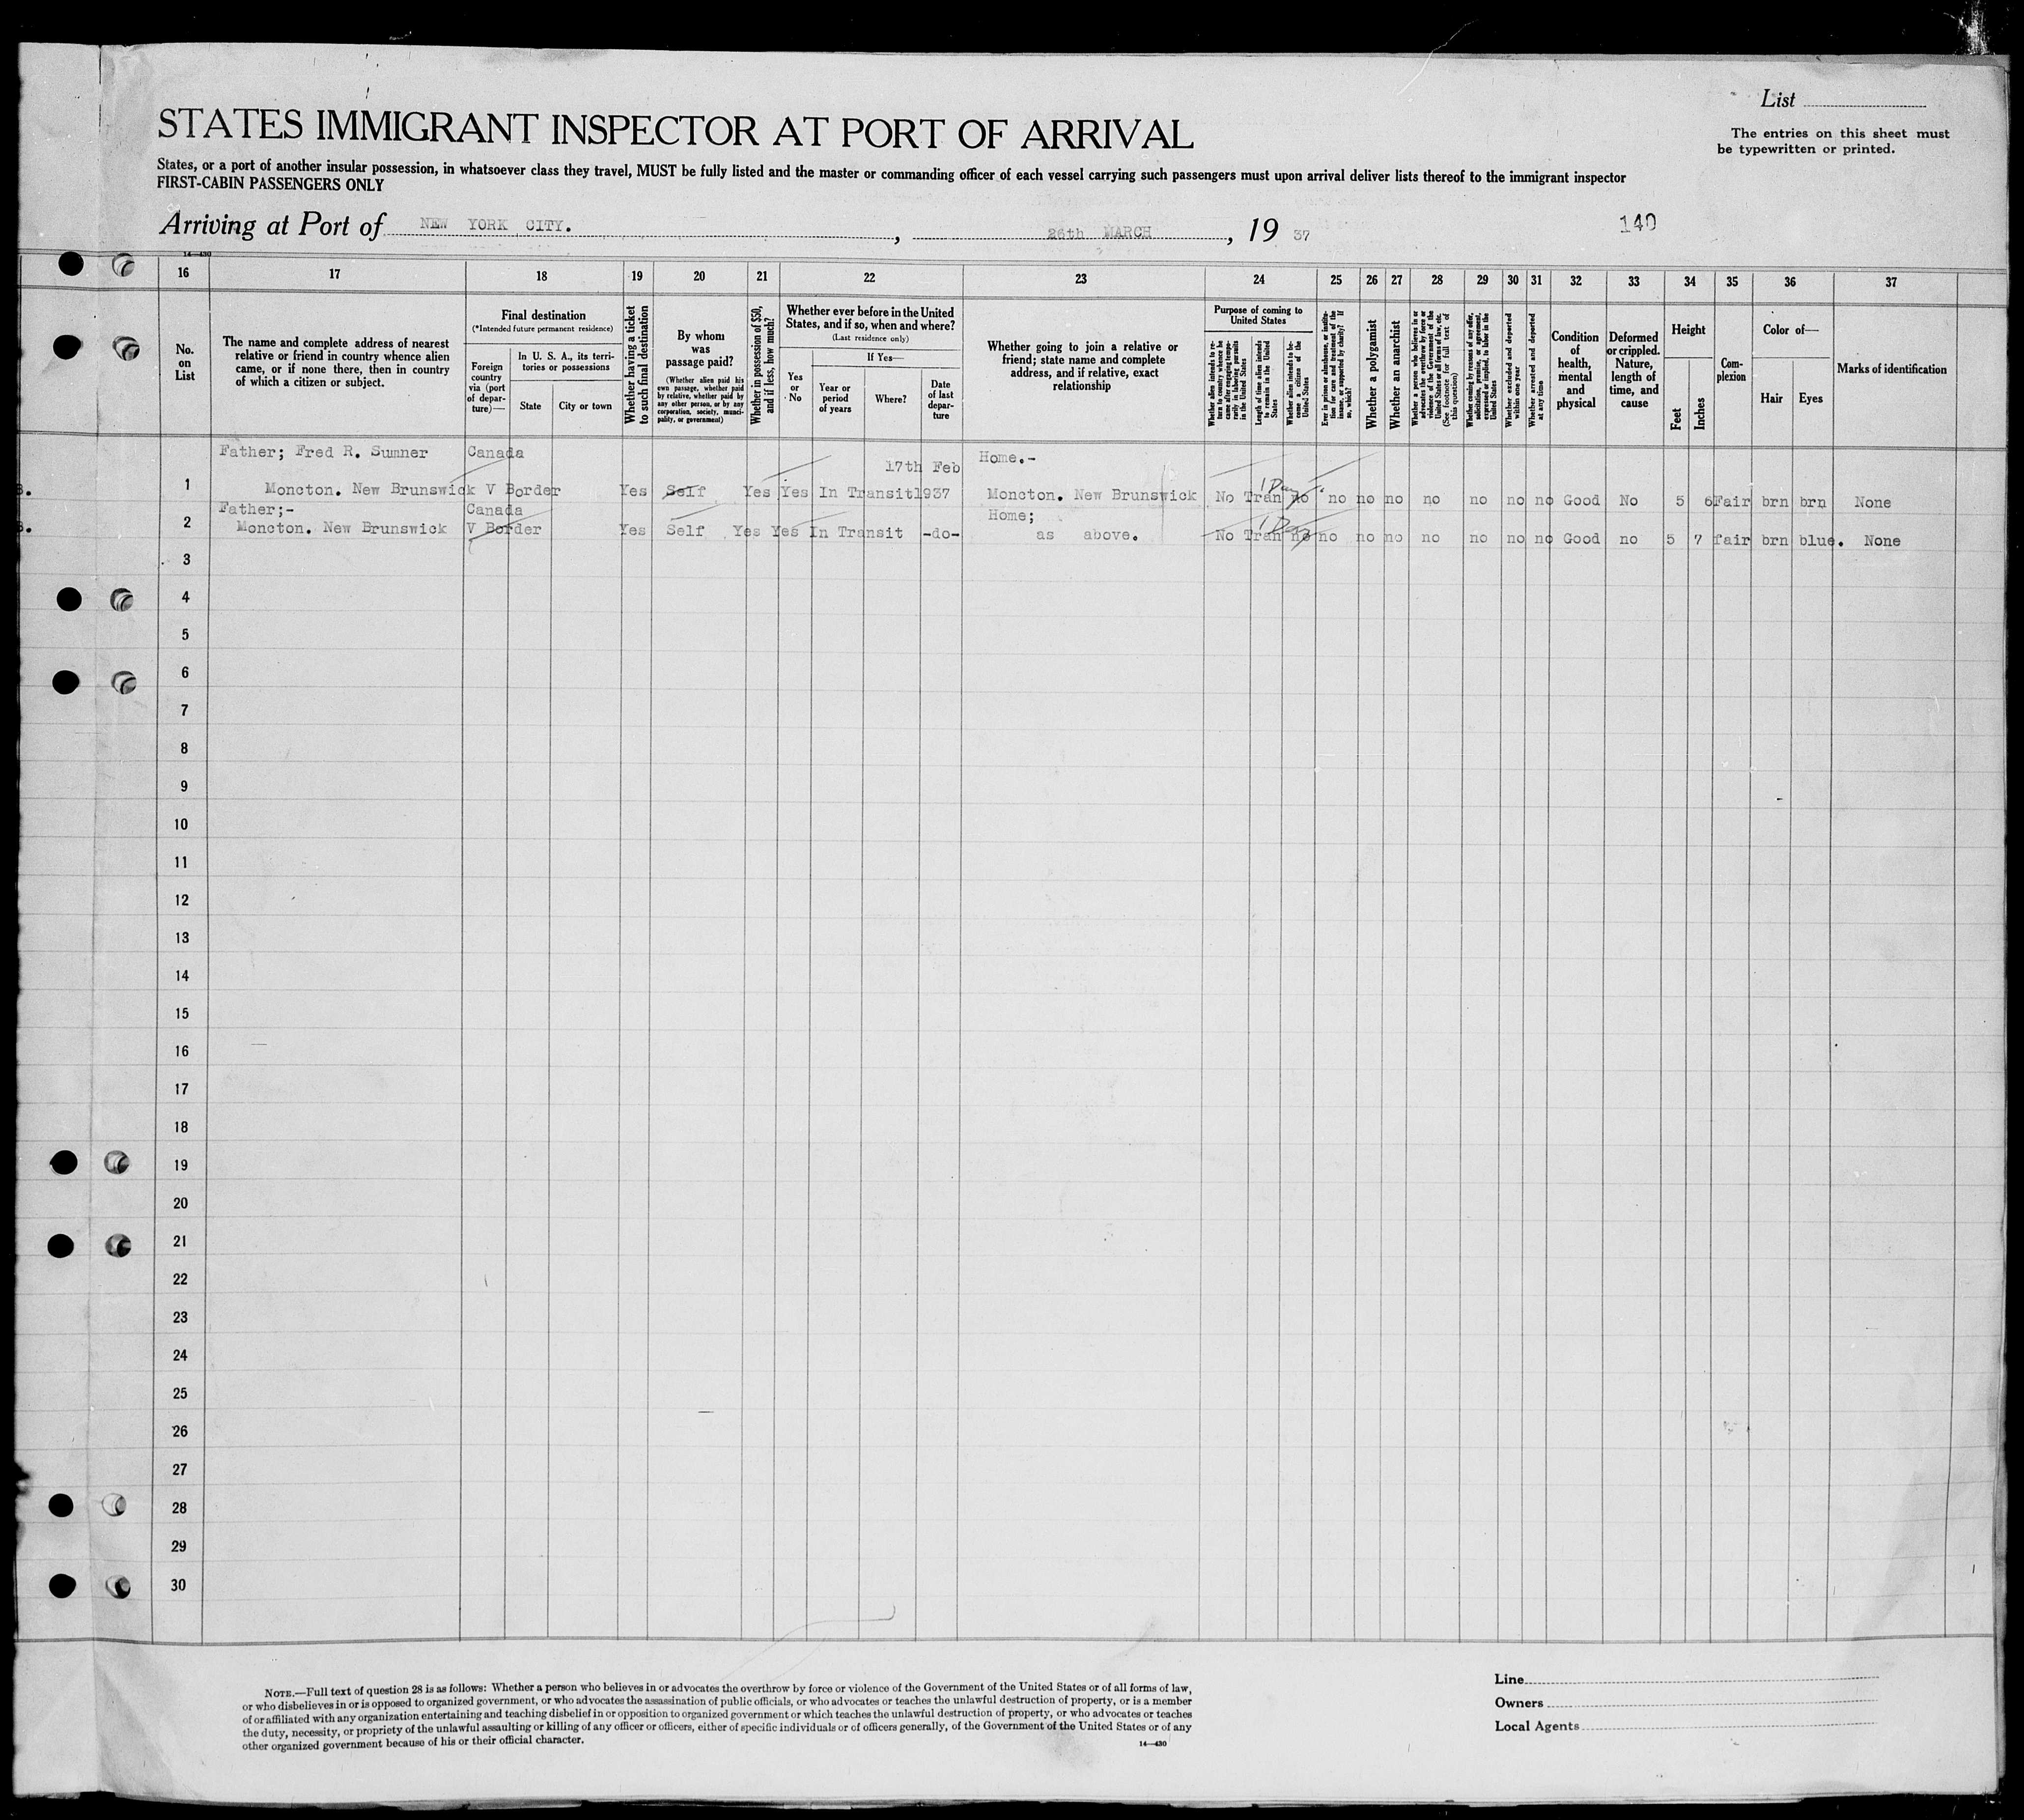 List
STATES IMMIGRANT INSPECTOR AT PORT OF ARRIVAL
The entries on this sheet must
be typewritten or printed.
States, or a port of another insular possession, in whatsoever class they travel, MUST be fully listed and the master or commanding officer of each vessel carrying such passengers must upon arrival deliver lists thereof to the immigrant inspector
FIRST-CABIN PASSENGERS ONLY
Arriving at Port of NEW YORK CITY. , 26th MARCH , 19 37 140
14—430
16 17 18 19 20 21 22 23 24 25 26 27 28 29 30 31 32 33 34 35 36 37
No.
on
List
The name and complete address of nearest
relative or friend in country whence alien
came, or if none there, then in country
of which a citizen or subject.
Final destination
(*Intended future permanent residence)
Foreign
country
via (port
of depar-
ture)—
In U. S. A., its terri-
tories or possessions
State
City or town
Whether having a ticket
to such final destination
By whom
was
passage paid?
(Whether alien paid his
own passage, whether paid
by relative, whether paid by
any other person, or by any
corporation, society, munici-
pality, or government)
Whether in possession of $50,
and if less, how much?
Whether ever before in the United
States, and if so, when and where?
(Last residence only)
Yes
or
No
If Yes—
Year or
period
of years
Where?
Date
of last
depar-
ture
Whether going to join a relative or
friend; state name and complete
address, and if relative, exact
relationship
Purpose of coming to
United States
Whether alien intends to re-
turn to country whence he
came after engaging tempo-
rarily in laboring pursuits
in the United States
Length of time alien intends
to remain in the United
States
Whether alien intends to be-
come a citizen of the
United States
Ever in prison or almshouse, or institu-
tion for care and treatment of the
insane, or supported by charity? If
so, which?
Whether a polygamist
Whether an anarchist
Whether a person who believes in or
advocates the overthrow by force or
violence of the Government of the
United States or all forms of law, etc.
(See footnote for full text of
this question)
Whether coming by reasons of any offer,
solicitation, promise, or agreement,
expressed or implied, to labor in the
United States
Whether excluded and deported
within one year
Whether arrested and deported
at any time
Condition
of
health,
mental
and
physical
Deformed
or crippled.
Nature,
length of
time, and
cause
Height
Feet
Inches
Com-
plexion
Color of—
Hair
Eyes
Marks of identification
Father; Fred R. Sumner Canada 17th Feb Home.-
1 Day
1 Moncton. New Brunswick V Border Yes Self Yes Yes In Transit 1937 Moncton. New Brunswick No Tran no no no no no no no no Good No 5 6 Fair brn brn None
Father;- Canada Home;
1 Day
2 Moncton. New Brunswick V Border Yes Self Yes Yes In Transit -do- as above. No Tran no no no no no no no no Good no 5 7 fair brn blue. None
3
4
5
6
7
8
9
10
11
12
13
14
15
16
17
18
19
20
21
22
23
24
25
26
27
28
29
30
NOTE.—Full text of question 28 is as follows: Whether a person who believes in or advocates the overthrow by force or violence of the Government of the United States or of all forms of law,
or who disbelieves in or is opposed to organized government, or who advocates the assassination of public officials, or who advocates or teaches the unlawful destruction of property, or is a member
of or affiliated with any organization entertaining and teaching disbelief in or opposition to organized government or which teaches the unlawful destruction of property, or who advocates or teaches
the duty, necessity, or propriety of the unlawful assaulting or killing of any officer or officers, either of specific individuals or of officers generally, of the Government of the United States or of any
other organized government because of his or their official character.
14—430
Line
Owners
Local Agents